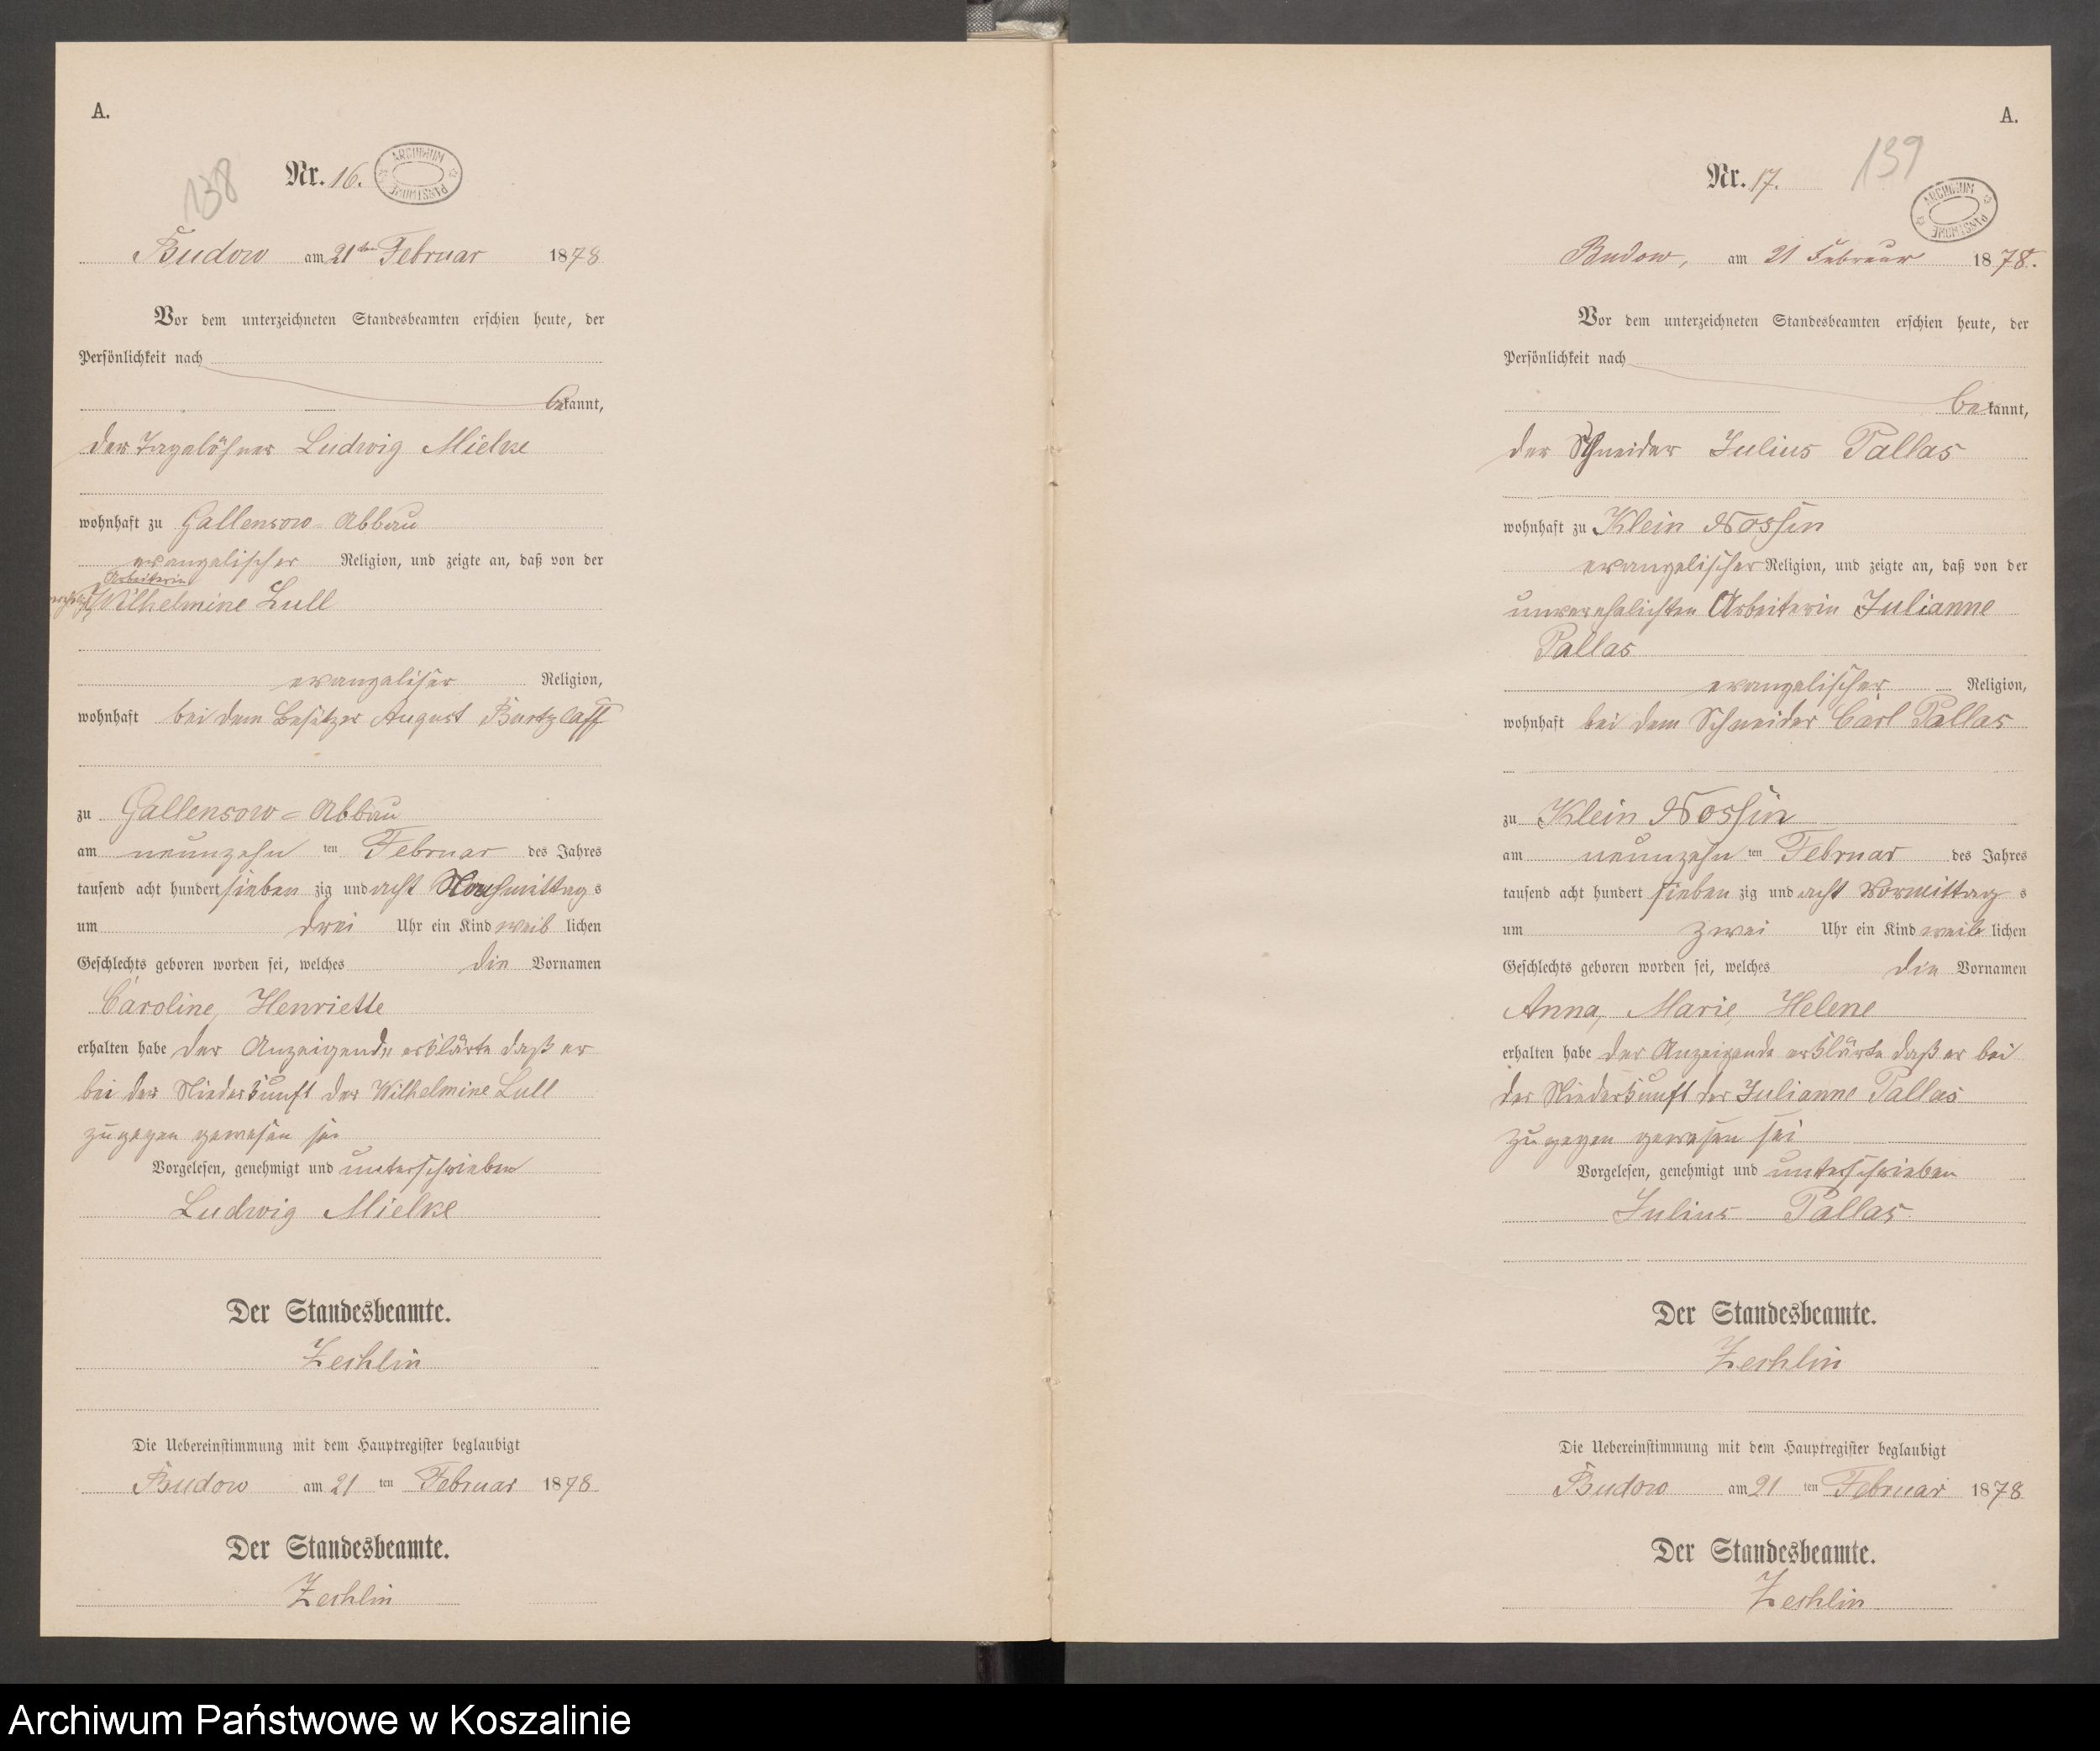 A.
138
Nr. 16.
ARCHIWUM PAŃSTWOWE
Budow am 21ten Februar 1878
Vor dem unterzeichneten Standesbeamten erschien heute, der
Persönlichkeit nach
bekannt,
der Tagelöhner Ludwig Mielke
wohnhaft zu Gallensow-Abbau
evangelischer Religion, und zeigte an, daß von der
Arbeiterin
Wilhelmine Lull
evangeliser Religion,
wohnhaft bei dem Besitzer August Bartzlaff
zu Gallensow-Abbau
am neunzehn ten Februar des Jahres
tausend acht hundert sieben zig und acht Nachmittag s
um drei Uhr ein Kind weib lichen
Geschlechts geboren worden sei, welches die Vornamen
Caroline, Henriette
erhalten habe der Anzeigende erklärte daß er
bei der Niederkunft der Wilhelmine Lull
zugegen gewesen sei
Vorgelesen, genehmigt und unterschrieben
Ludwig Mielke
Der Standesbeamte.
Zechlin
Die Uebereinstimmung mit dem Hauptregister beglaubigt
Budow am 21 ten Februar 1878
Der Standesbeamte.
Zechlin
A.
139
Nr. 17.
ARCHIWUM PAŃSTWOWE
Budow, am 21 Februar 1878.
Vor dem unterzeichneten Standesbeamten erschien heute, der
Persönlichkeit nach
bekannt,
der Schneider Julius Pallas
wohnhaft zu Klein Nossin
evangelischer Religion, und zeigte an, daß von der
unverehelichten Arbeiterin Julianne
Pallas
evangelischer Religion,
wohnhaft bei dem Schneider Carl Pallas
zu Klein Nossin
am neunzehn ten Februar des Jahres
tausend acht hundert sieben zig und acht Vormittag s
um zwei Uhr ein Kind weib lichen
Geschlechts geboren worden sei, welches die Vornamen
Anna, Marie, Helene
erhalten habe der Anzeigende erklärte daß er bei
der Niederkunft der Julianne Pallas
zugegen gewesen sei
Vorgelesen, genehmigt und unterschrieben
Julius Pallas
Der Standesbeamte.
Zechlin
Die Uebereinstimmung mit dem Hauptregister beglaubigt
Budow am 21 ten Februar 1878
Der Standesbeamte.
Zechlin
Archiwum Państwowe w Koszalinie